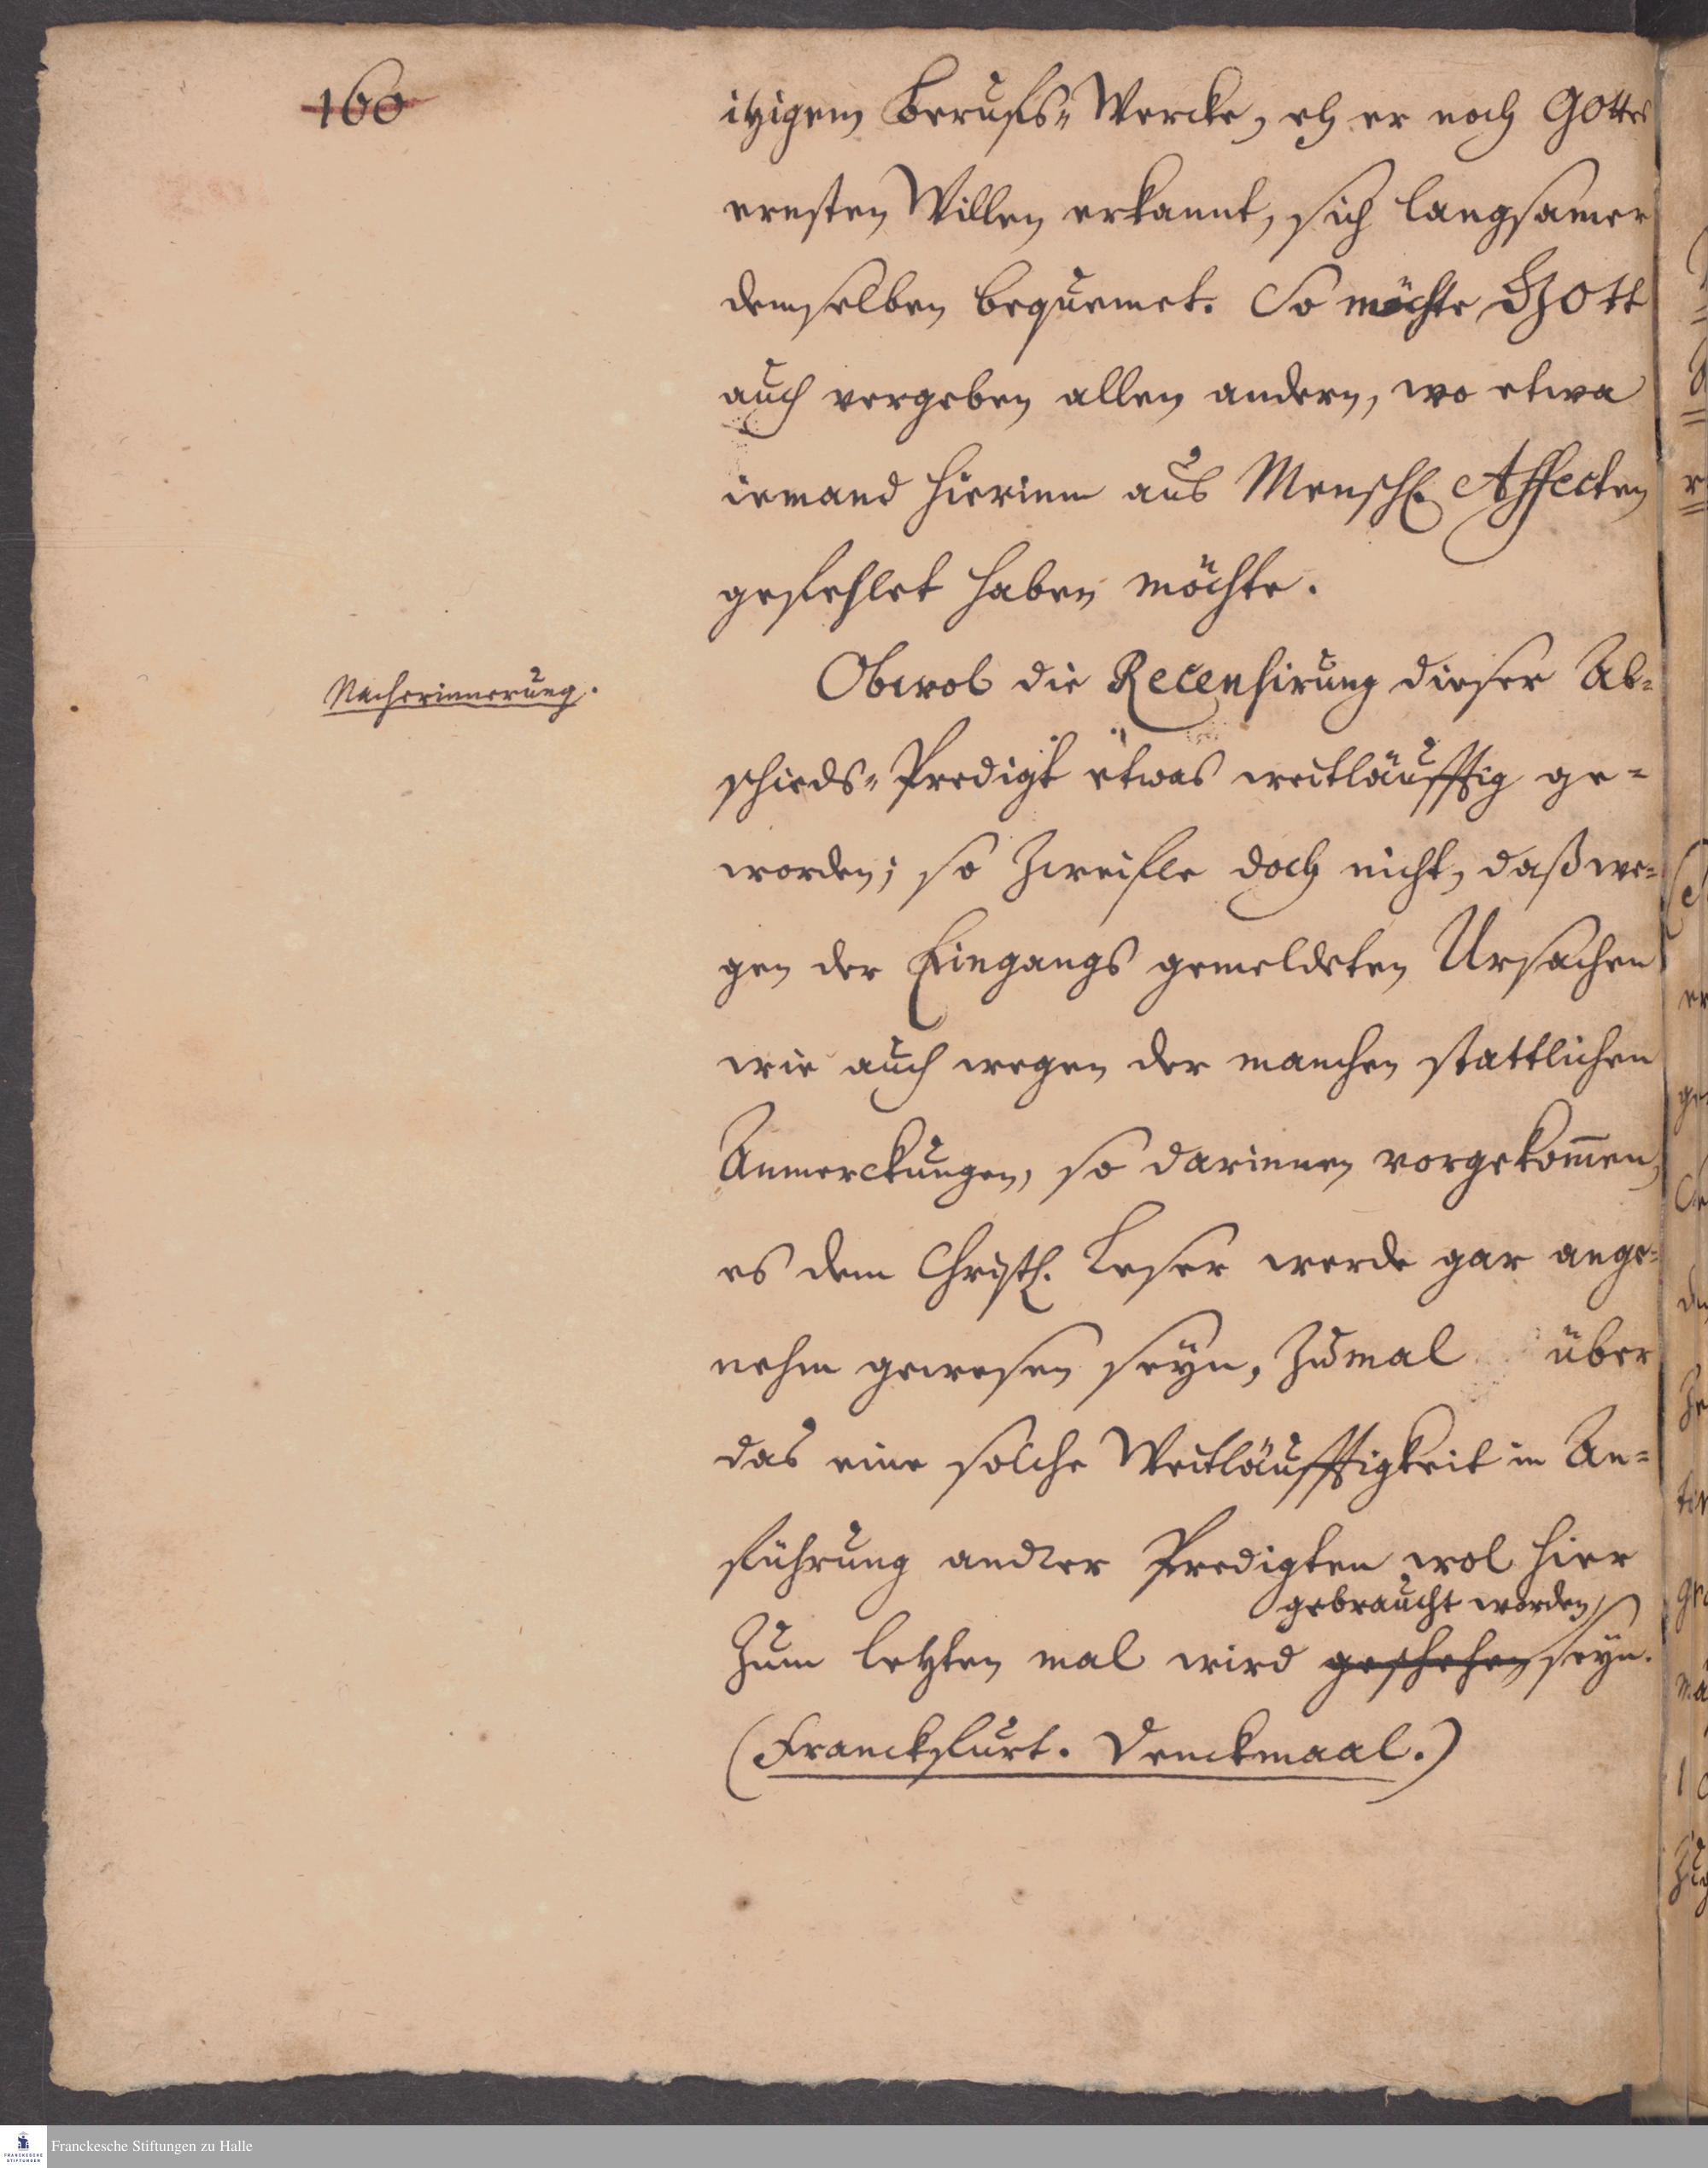 160
itzigem Beruffs-Wercke, eh er noch GOttes
ernsten Willen erkannt, sich langsamer
demselben bequemet. So möchte GOtt
auch vergeben allen andern, wo etwa
iemand hierinn aus Menschl. Affecten
gefehlet haben möchte.
Nacherinnerung.
Obwol die Recensirung dieser Ab-
schieds-Predigt etwas weitläufftig ge-
worden; so zweifle doch nicht, daß we-
gen der Eingangs gemeldeten Ursachen
wie auch wegen der manchen stattlichen
Anmerckungen, so darinnen vorgekom̄en,
es dem Christl. Leser werde gar ange-
nehm gewesen seyn, zumal über
das eine solche Weitläufftigkeit in An-
führung andrer Predigten wol hier
gebraucht worden
zum letzten mal wird geschehen seyn.
(Franckfurt. Denckmaal.)
Franckesche Stiftungen zu Halle